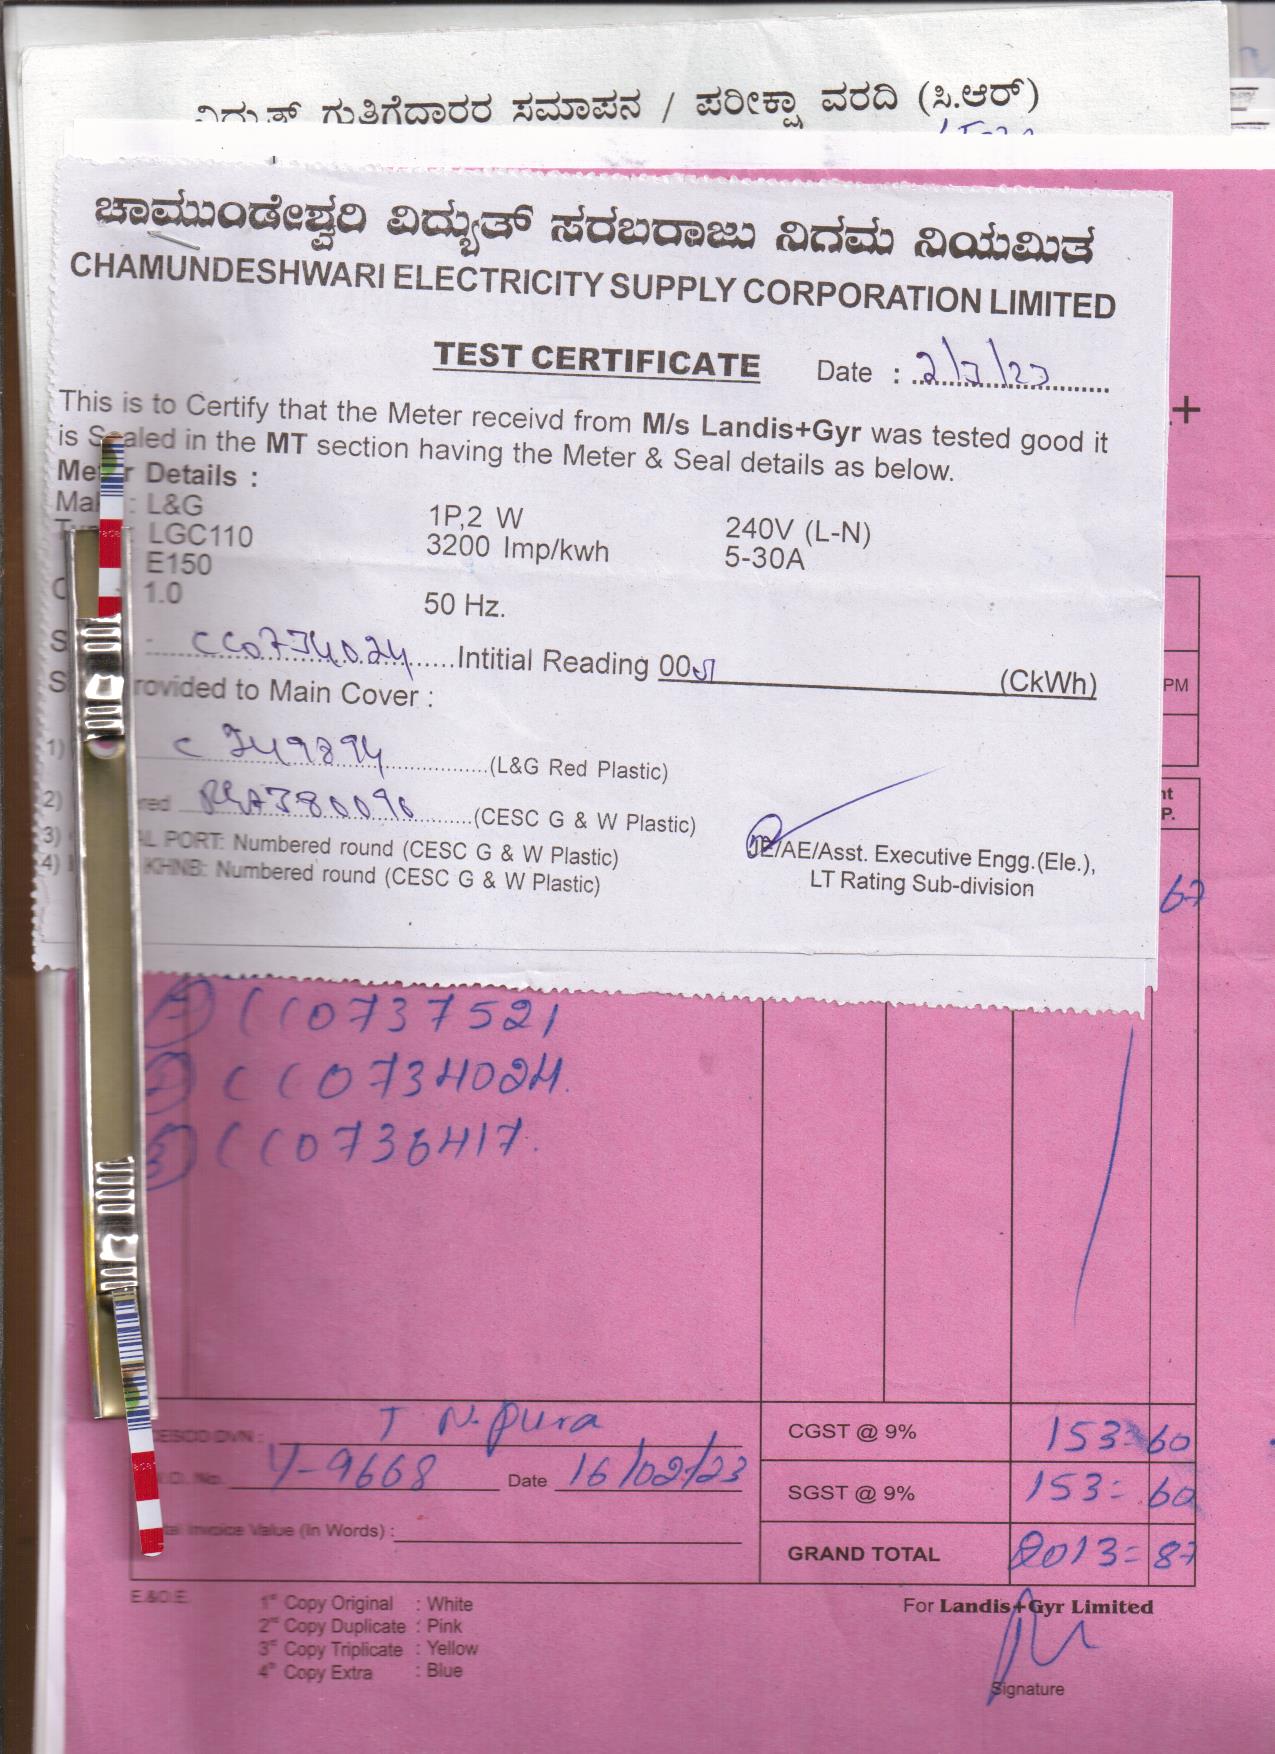 ವಿದ್ಯುತ್ ಗುತಿಗೆದಾರರ ಸಮಾಪನ / ಪರೀಕ್ಷಾ ವರದಿ (ಸಿ.ಆರ್)
ಚಾಮುಂಡೇಶ್ವರಿ ವಿದ್ಯುತ್ ಸರಬರಾಜು ನಿಗಮ ನಿಯಮಿತ
CHAMUNDESHWARI ELECTRICITY SUPPLY CORPORATION LIMITED
TEST CERTIFICATE Date : 2/3/23
This is to Certify that the Meter receivd from M/s Landis+Gyr was tested good it
is Sealed in the MT section having the Meter & Seal details as below.
Details :
: L&G 1P,2 W 240V (L-N)
LGC110 3200 Imp/kwh 5-30A
E150
1.0 50 Hz.
CC0734024 Intitial Reading 00 (CkWh)
to Main Cover :
1) (L&G Red Plastic)
2) (CESC G & W Plastic)
3) PORT: Numbered round (CESC G & W Plastic)
4) KHNB: Numbered round (CESC G & W Plastic)
JE/AE/Asst. Executive Engg.(Ele.),
LT Rating Sub-division
PM
67
CC0737521
CC0734024.
CC0736417.
T N.pura
CGST @ 9% 153=60
Y-9668 Date 16/02/23
SGST @ 9% 153=60
Invoice Value (In Words) :
GRAND TOTAL 2013=87
E.&O.E.
1st Copy Original : White
2nd Copy Duplicate : Pink
3rd Copy Triplicate : Yellow
4th Copy Extra : Blue
For Landis+Gyr Limited
Signature